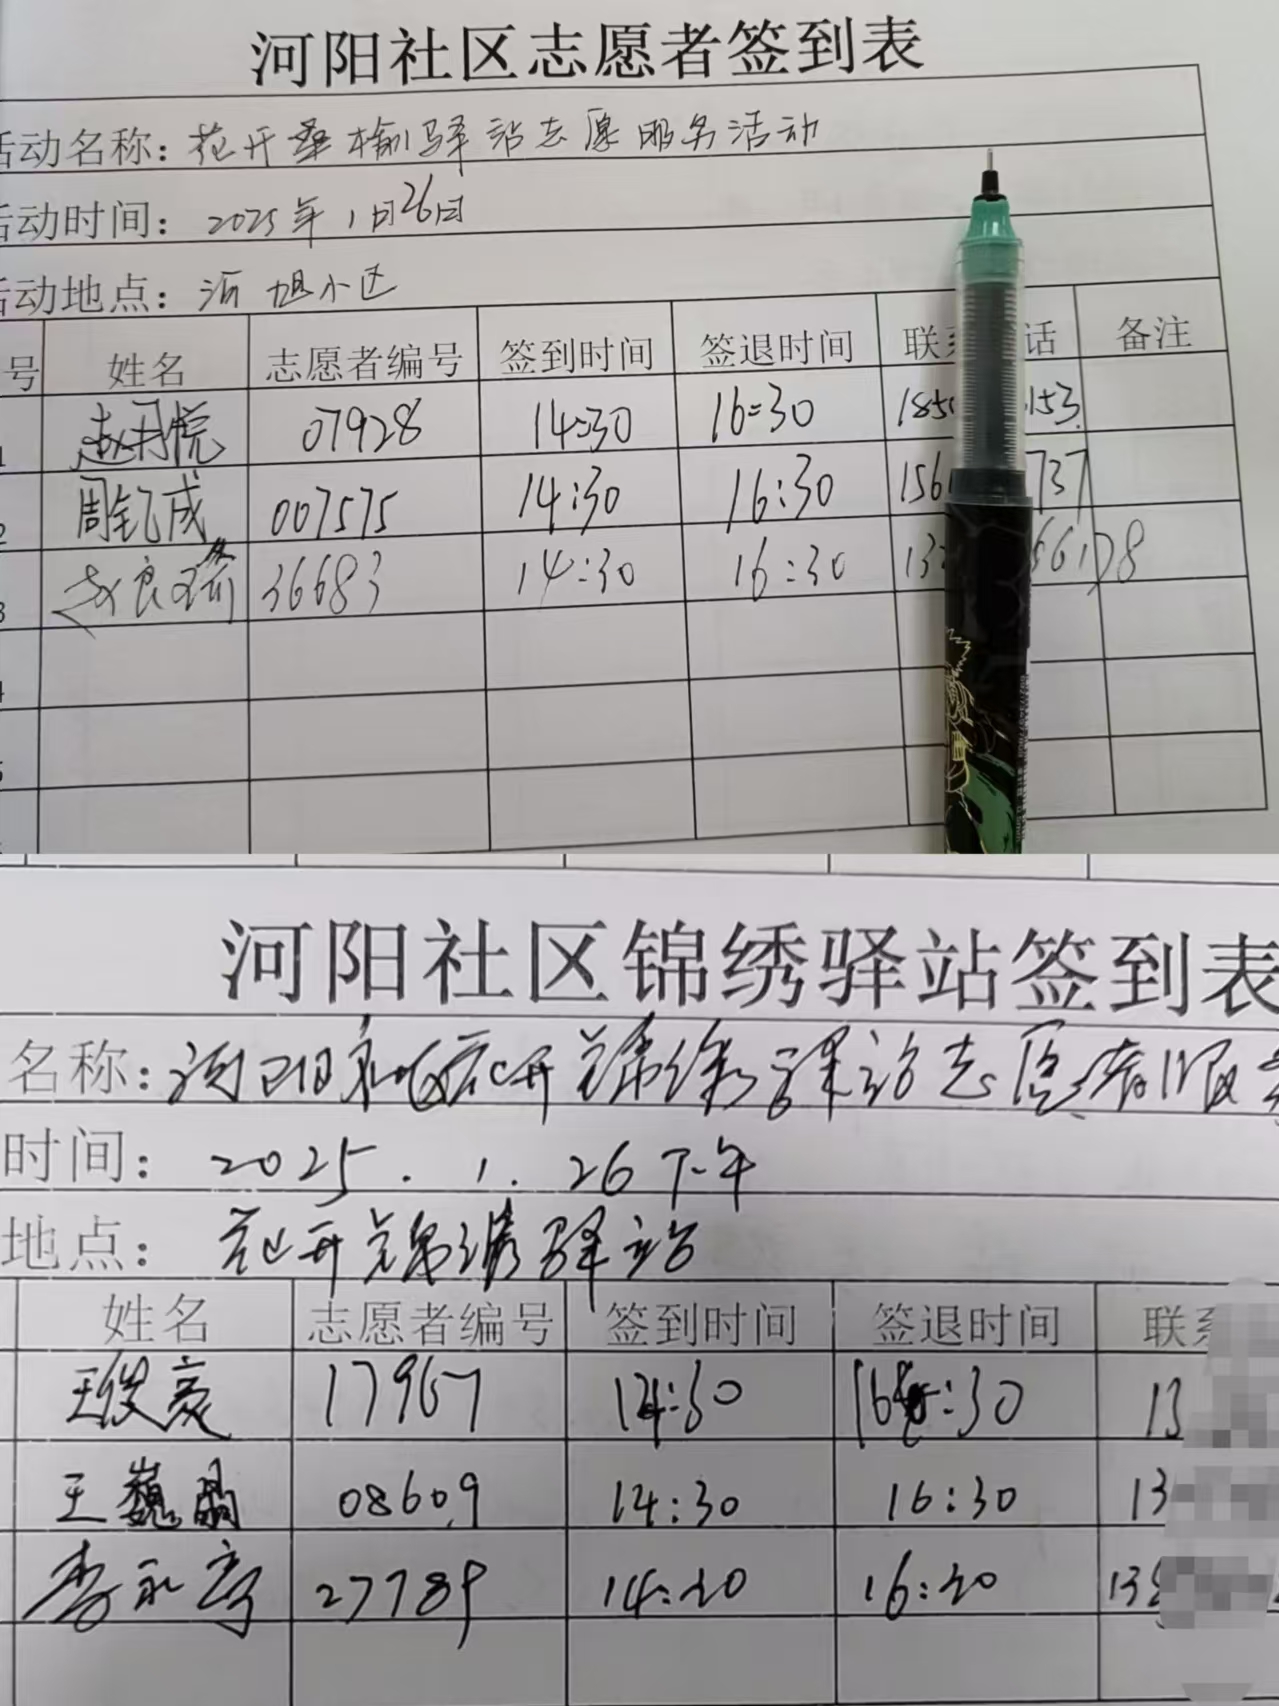 河阳社区志愿者签到表
活动名称：花开桑榆驿站志愿服务活动
活动时间：2025年1月26日
活动地点：河旭小区
号 姓名 志愿者编号 签到时间 签退时间 联系 话 备注
1 赵玥悦 07928 14:30 16:30 185 153
2 周钇成 007575 14:30 16:30 156 737
3 赵良瑜 36683 14:30 16:30 13 66178
4
5
河阳社区锦绣驿站签到表
名称：河阳社区花开锦绣驿站志愿者服
时间：2025.1.26下午
地点：花开锦绣驿站
姓名 志愿者编号 签到时间 签退时间 联系
王俊豪 17967 14:30 16:30 13
王巍晶 08609 14:30 16:30 13
李永亭 27789 14:30 16:30 138